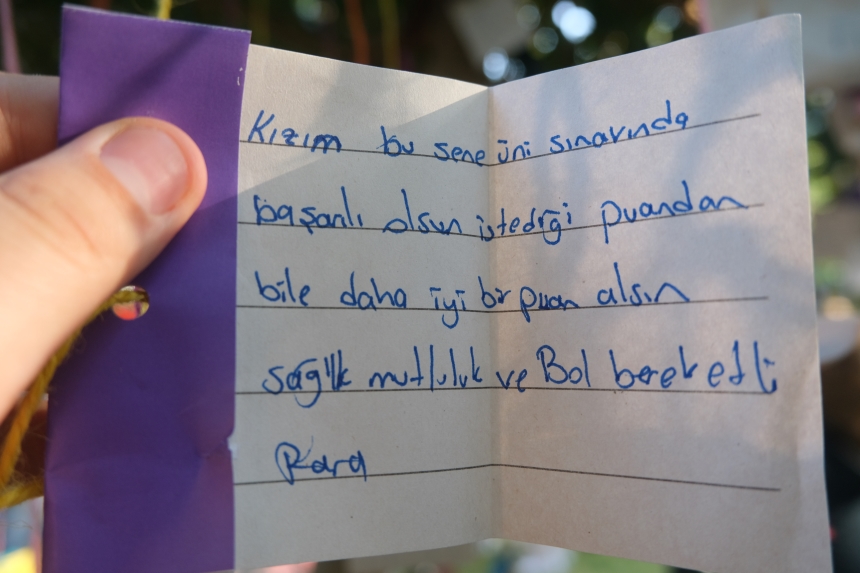 Kızım bu sene üni sınavında
başarılı olsun istediği puandan
bile daha iyi bir puan alsın
sağlık mutluluk ve Bol bereketli
Para